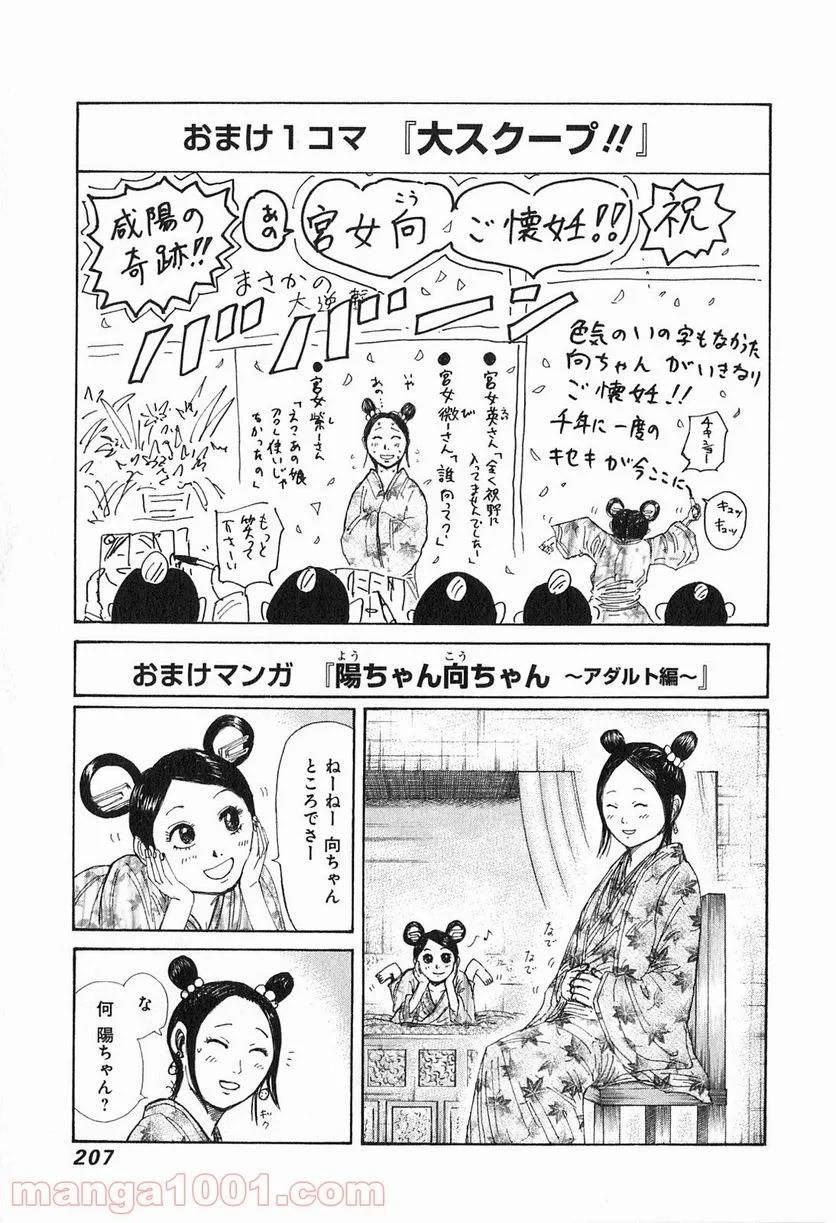 おまけ1コマ 『大スクープ!!』
祝
ご懐妊!!
宮女向
こう
あの
咸陽の
奇跡!!
まさかの
大逆転
ババーン
色気のいの字もなかった
向ちゃんがいきなり
ご懐妊!!
千年に一度の
キセキが今ここに
チキショー
キュッ
キュッ
●宮女英さん「全く視野に
入ってませんでしたー」
●宮女微ーさん「誰向って?」
いや
あの…
●宮女紫ーさん
「えっあの娘
召し使いじゃ
なかったの」
もっと
笑って
下さーい
おまけマンガ 『陽ちゃん向ちゃん ～アダルト編～』
よう
こう
なで
なで
♪
ねーねー 向ちゃん
ところでさー
な
何 陽ちゃん?
ギク
207
manga1001.com